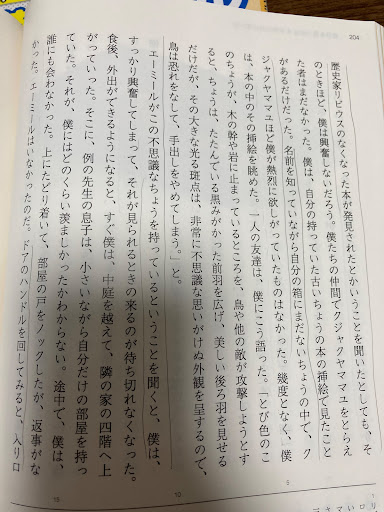 204
歴史家リビウスのなくなった本が発見されたということを聞いたとしても、そ
のときほど、僕は興奮しないだろう。僕たちの仲間でクジャクヤママユをとらえ
た者はまだなかった。僕は、自分の持っていた古いちょうの本の挿絵で見たこと
があるだけだった。名前を知っていながら自分の箱にまだないちょうの中で、ク
ジャクヤママユほど僕が熱烈に欲しがっていたものはなかった。幾度となく、僕
は、本の中のその挿絵を眺めた。一人の友達は、僕にこう語った。「とび色のこ
のちょうが、木の幹や岩に止まっているところを、鳥や他の敵が攻撃しようとす
ると、ちょうは、たたんでいる黒みがかった前羽を広げ、美しい後ろ羽を見せる
だけだが、その大きな光る斑点は、非常に不思議な思いがけぬ外観を呈するので、
鳥は恐れをなして、手出しをやめてしまう。」と。
エーミールがこの不思議なちょうを持っているということを聞くと、僕は、
すっかり興奮してしまって、それが見られるときの来るのが待ち切れなくなった。
食後、外出ができるようになると、すぐ僕は、中庭を越えて、隣の家の四階へ上
がっていった。そこに、例の先生の息子は、小さいながら自分だけの部屋を持っ
ていた。それが、僕にはどのくらい羨ましかったかわからない。途中で、僕は、
誰にも会わなかった。上にたどり着いて、部屋の戸をノックしたが、返事がな
かった。エーミールはいなかったのだ。ドアのハンドルを回してみると、入り口
5
10
15